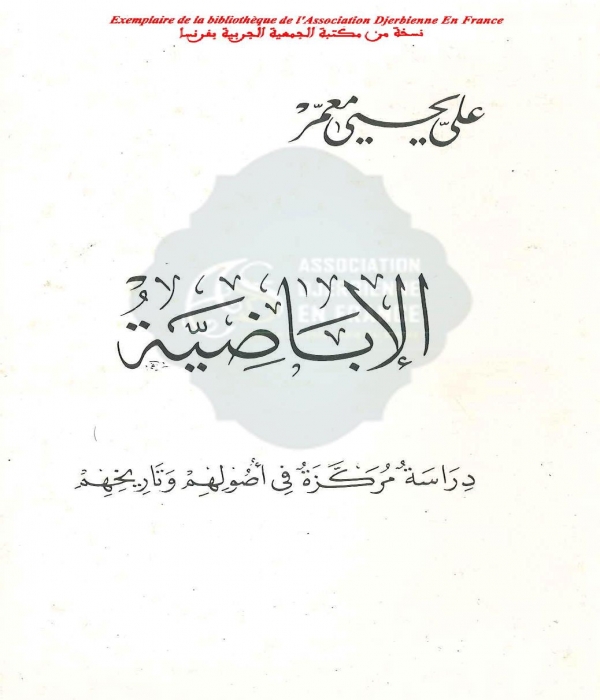 Exemplaire de la bibliothèque de l'Association Djerbienne En France
نسخة من مكتبة الجمعية الجربية بفرنسا
علي يحيى معمّر
ASSOCIATION
DJERBIENNE
EN FRANCE
الإبَاضِيَّةُ
دِرَاسَةٌ مُرَكَّزَةٌ فِي أُصُولِهِمْ وَتَارِيخِهِمْ